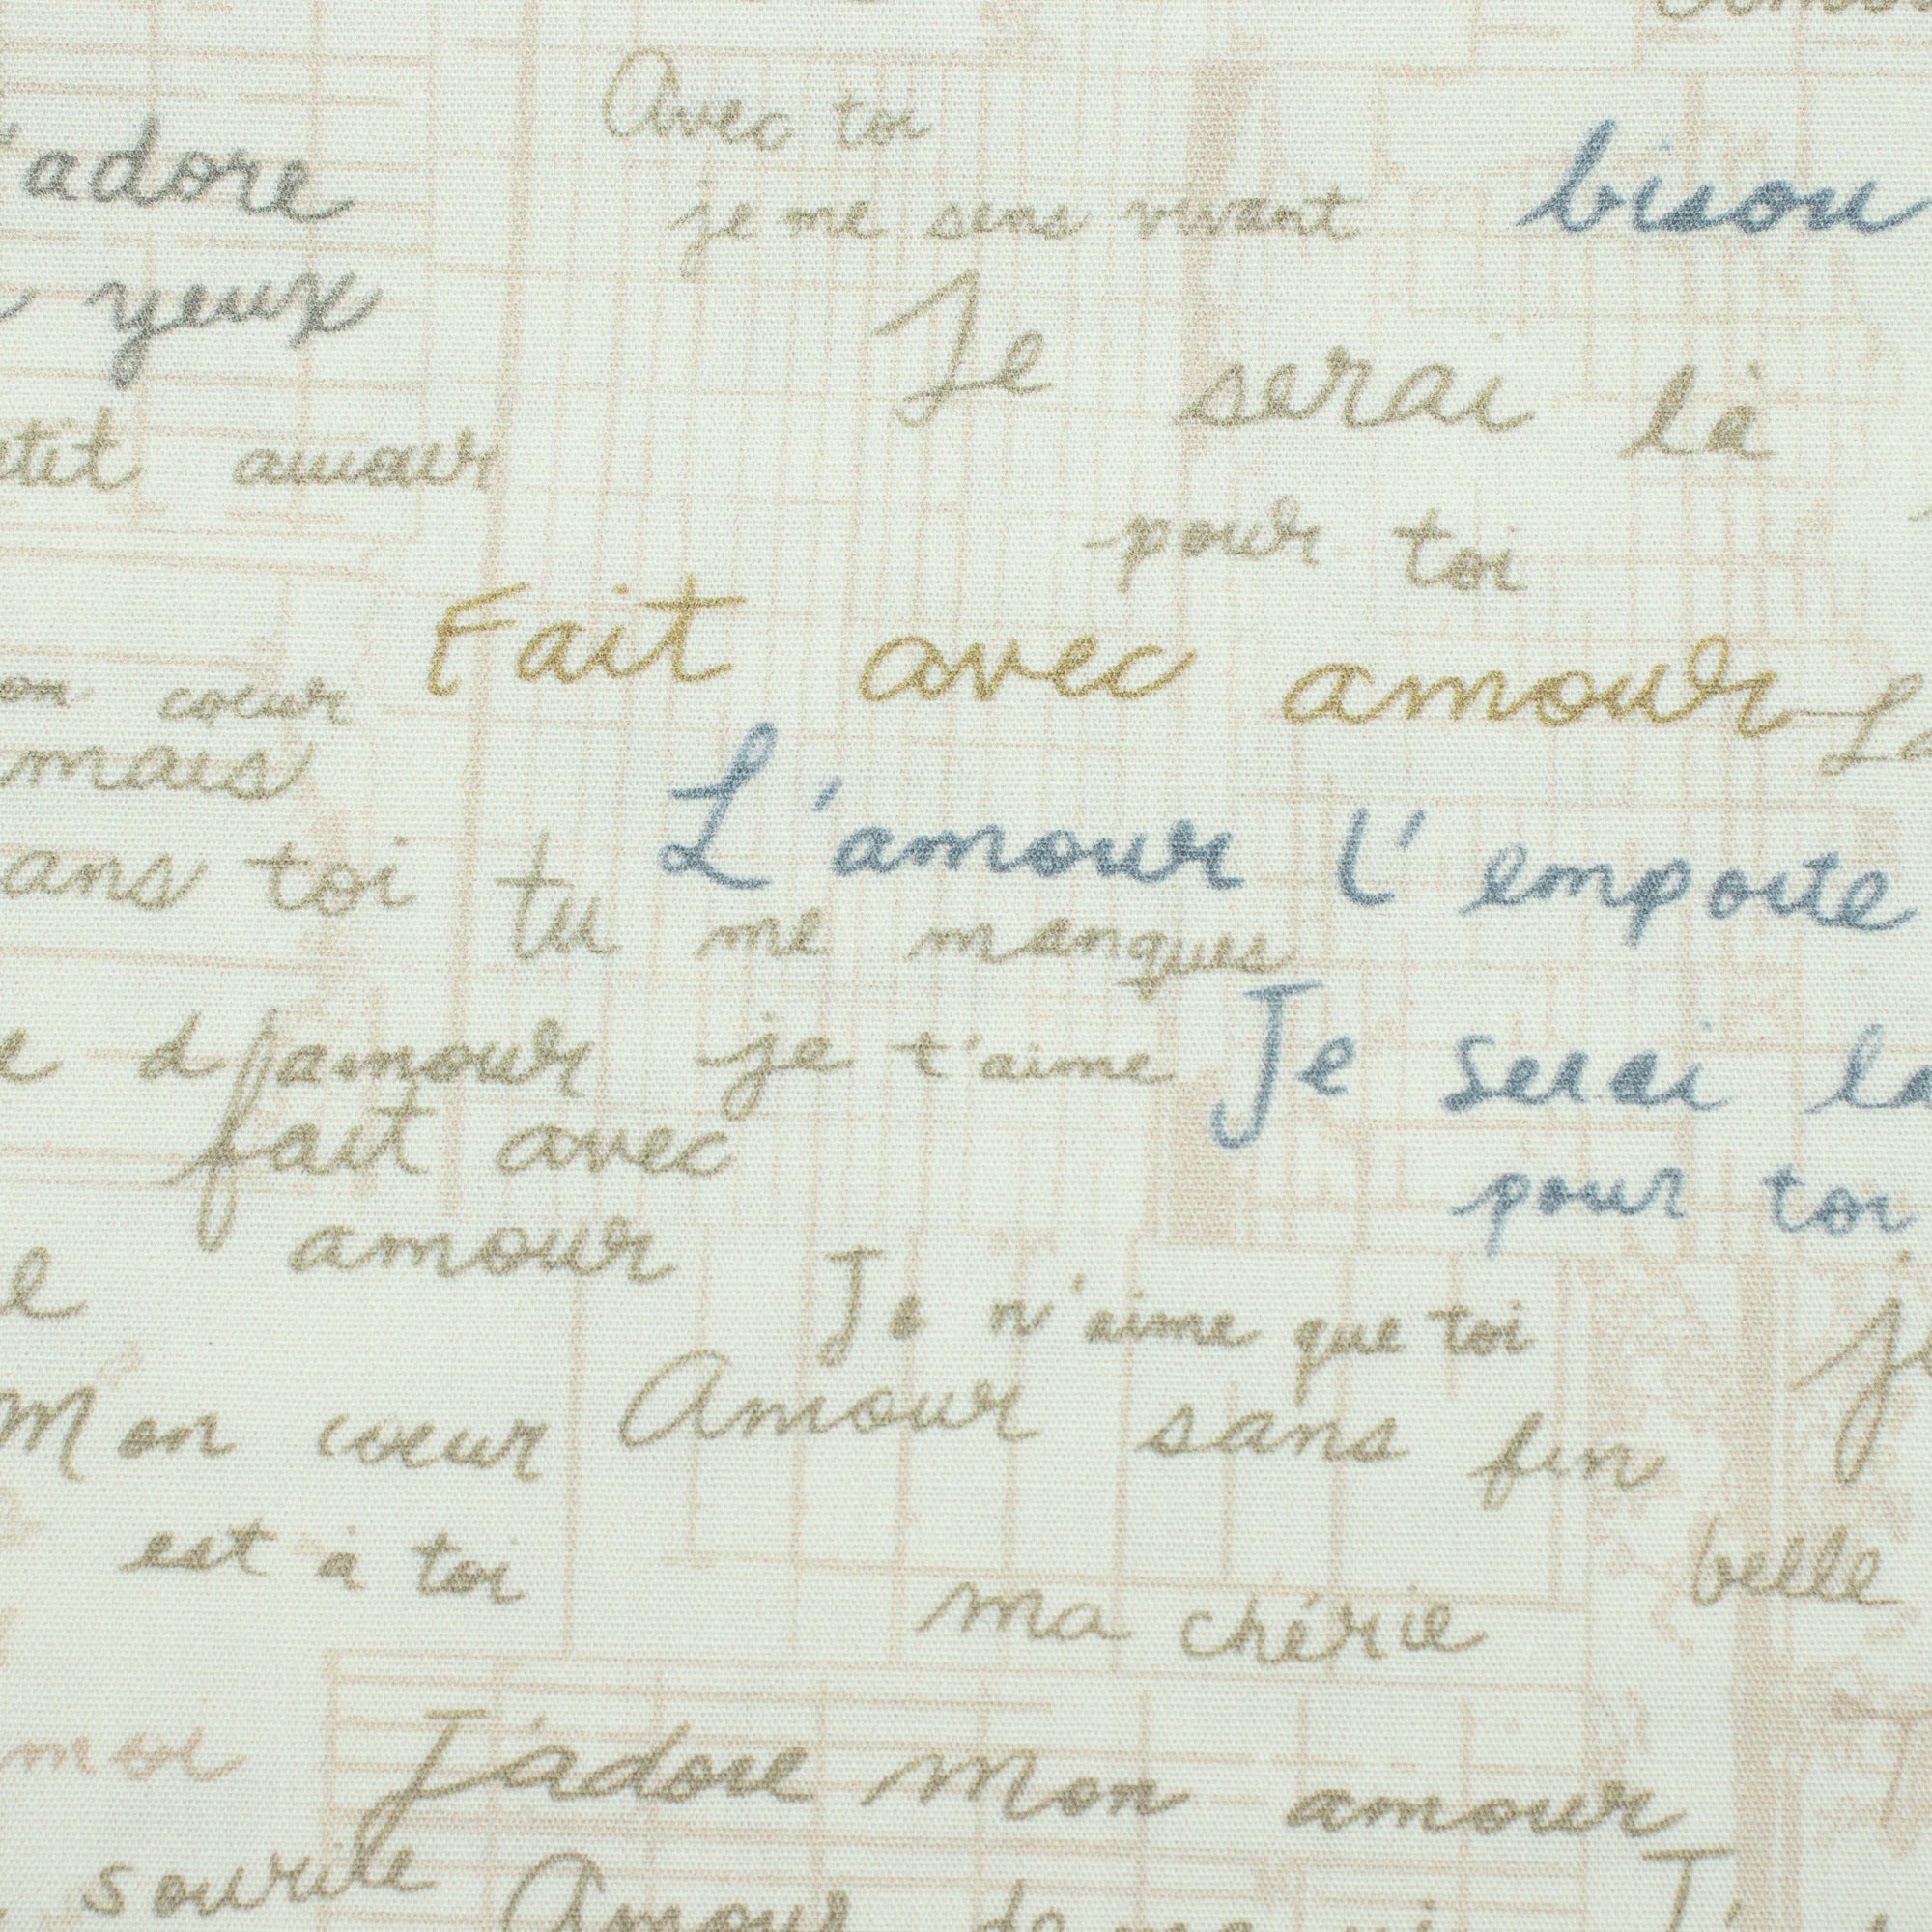 Avec toi
'adore
bisou
je me sens vivant
yeux
Je serai là
etit amour
pour toi
Fait avec amour
on coeur
mais
La
L'amour l'emporte
ans toi
tu me manques
e d'amour
je t'aime
Je serai la
fait avec
pour toi
amour
Je n'aime que toi
Mon coeur
Amour sans fin
est à toi
belle
ma chérie
moi
J'adore mon amour
sourire
Amour de ma vi